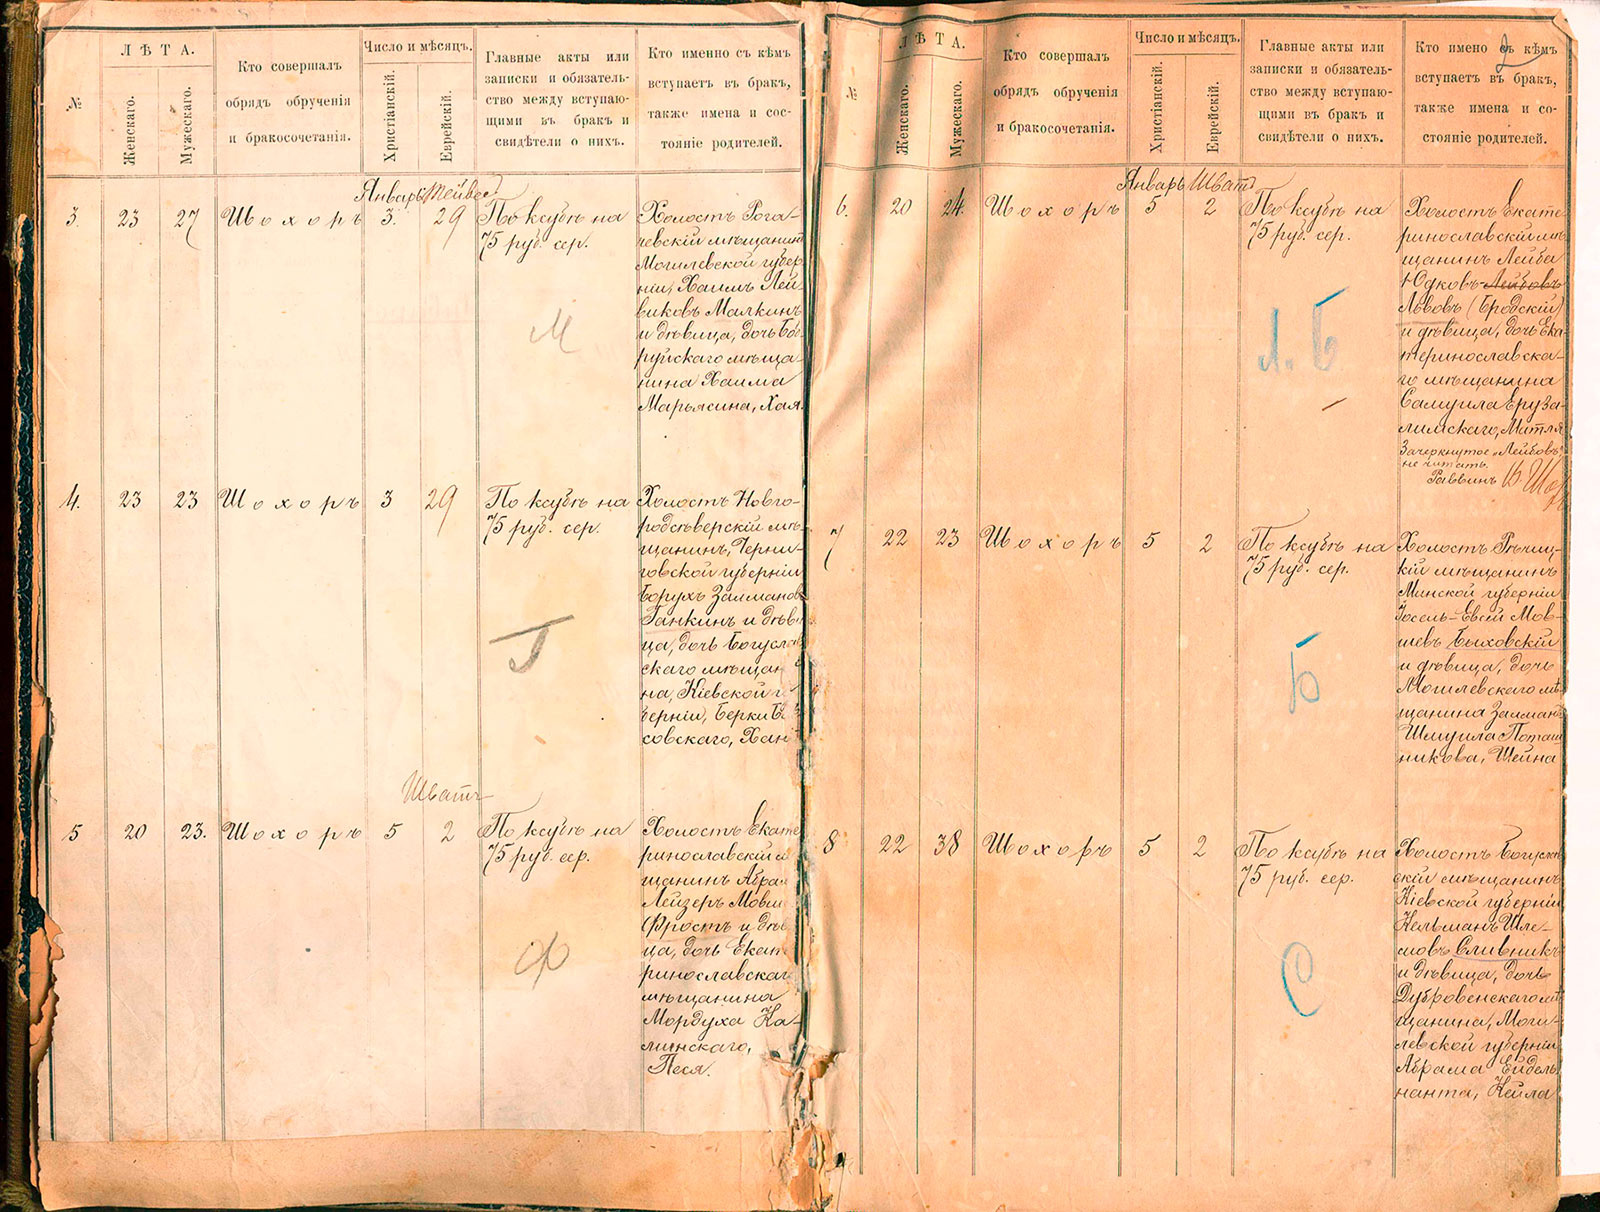 №
ЛѢТА.
Женскаго.
Мужескаго.
Кто совершалъ
обрядъ обрученія
и бракосочетанія.
Число и мѣсяцъ.
Христіанскій.
Еврейскій.
Главные акты или
записки и обязатель-
ство между вступаю-
щими въ бракъ и
свидѣтели о нихъ.
Кто именно съ кѣмъ
вступаетъ въ бракъ,
также имена и сос-
тояніе родителей.
Январь Тейвесъ
3. 23 27 Шохоръ 3. 29
По ксубѣ на
75 руб. сер.
М
Холостъ Рога-
чевскій мѣщанинъ
Могилевской губер
ніи, Хаимъ Лей-
виковъ Малкинъ
и дѣвица, дочь Боб-
руйскаго мѣща-
нина Хаима
Марьясина, Хая.
4. 23 23 Шохоръ 3 29
По ксубѣ на
75 руб. сер.
Г
Холостъ Новго-
родсѣверскій мѣ-
щанинъ, Черни-
говской губерніи
Борухъ Залмановъ
Ганкинъ и дѣви
ца, дочь Богуслав
скаго мѣщан
на, Кіевской г
берніи, Берки
совскаго, Хан
Шватъ
5 20 23. Шохоръ 5 2
По ксубѣ на
75 руб. сер.
Ф
Холостъ Екате
ринославскій м
щанинъ Абрам
Лейзеръ Мовш
Фростъ и дѣв
ца, дочь Екате
ринославскаг
мѣщанина
Мордуха Ка-
минскаго,
Песя.
2
№
ЛѢТА.
Женскаго.
Мужескаго.
Кто совершалъ
обрядъ обрученія
и бракосочетанія.
Число и мѣсяцъ.
Христіанскій.
Еврейскій.
Главные акты или
записки и обязатель-
ство между вступаю-
щими въ бракъ и
свидѣтели о нихъ.
Кто имено съ кѣмъ
вступаетъ въ бракъ,
также имена и со-
стояніе родителей.
Январь Шватъ
6. 20 24. Шохоръ 5 2
По ксубѣ на
75 руб. сер.
Л. Б
Холостъ Екате
ринославскій мѣ
щанинъ Лейба
Юдковъ Лейбовъ
Львовъ (Бродскій)
и дѣвица, дочь Ека-
теринославска-
го мѣщанина
Самуила Еруза-
лимскаго, Матля
Зачеркнутое „Лейбовъ"
не читать.
Раввинъ В. Шо
7 22 23 Шохоръ 5 2
По ксубѣ на
75 руб. сер.
Б
Холостъ Рѣчиц-
кій мѣщанинъ
Минской губерніи
Іосель-Евсей Мов-
шевъ Быховскій
и дѣвица, дочь
Могилевскаго мѣ
щанина Залмана
Шмуила Поташ
никова, Шейна
8 22 38 Шохоръ 5 2
По ксубѣ на
75 руб. сер.
С
Холостъ Богуслав
скій мѣщанинъ
Кіевской губерніи
Кельманъ Шле-
мовъ Сливникъ
и дѣвица, дочь
Дубровенскаго мѣ
щанина, Моги-
левской губерніи
Абрама Ейдель
нанта, Кейла